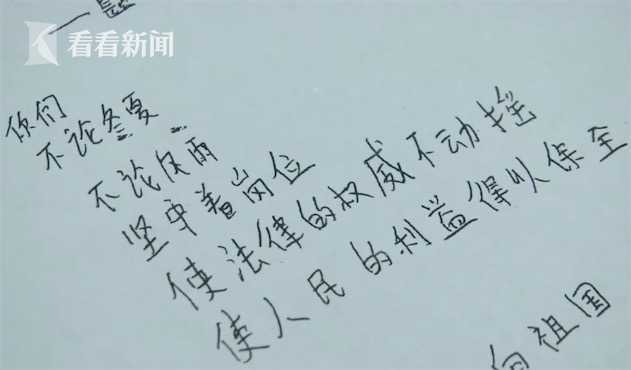 一题
看看新闻
你们
不论冬夏
不论风雨
坚守着岗位
使法律的权威不动摇
使人民的利益得以保全
向祖国